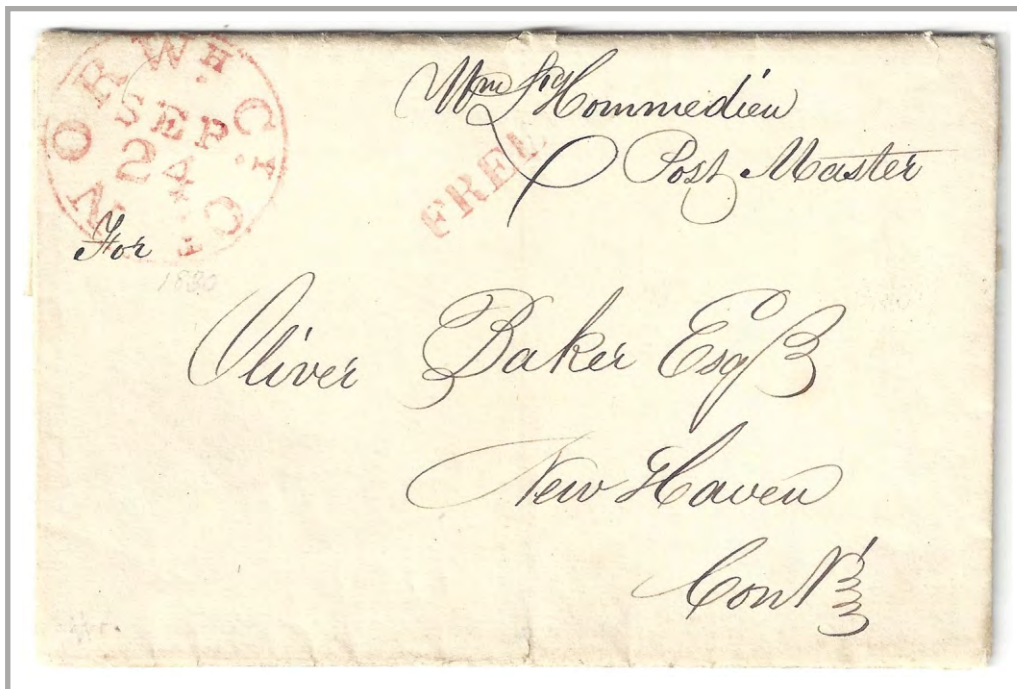 NORWH. CY. CT.
SEP.
24
FREE
Wm L'Hommedieu
Post Master
For
1830
Oliver Baker Esqr
New Haven
Cont